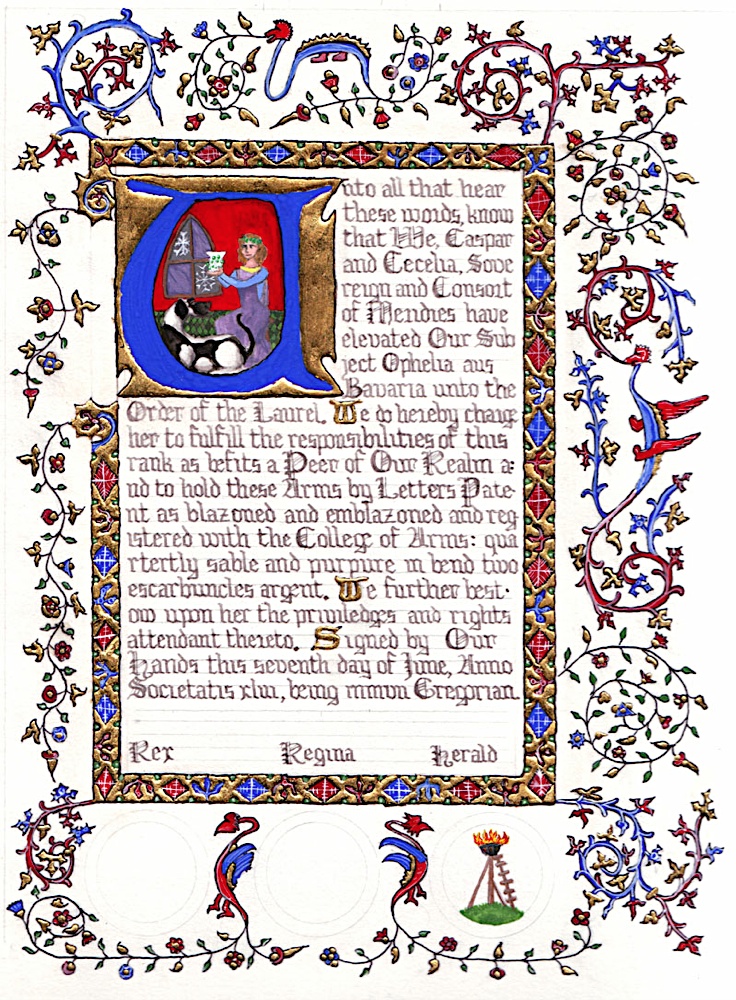 Unto all that hear
these words, know
that We, Caspar
and Cecelia, Sove
reign and Consort
of Meridies have
elevated Our Sub
ject Ophelia aus
Bavaria unto the
Order of the Laurel. We do hereby charge
her to fulfill the responsibilities of this
rank as befits a Peer of Our Realm a:
nd to hold these Arms by Letters Pate-
nt as blazoned and emblazoned and reg
istered with the College of Arms: qua
rtertly sable and purpure in bend two
escarbuncles argent. We further best-
ow upon her the priviledges and rights
attendant thereto. Signed by Our
Hands this seventh day of June, Anno
Societatis being Gregorian.
Rex Regina Herald